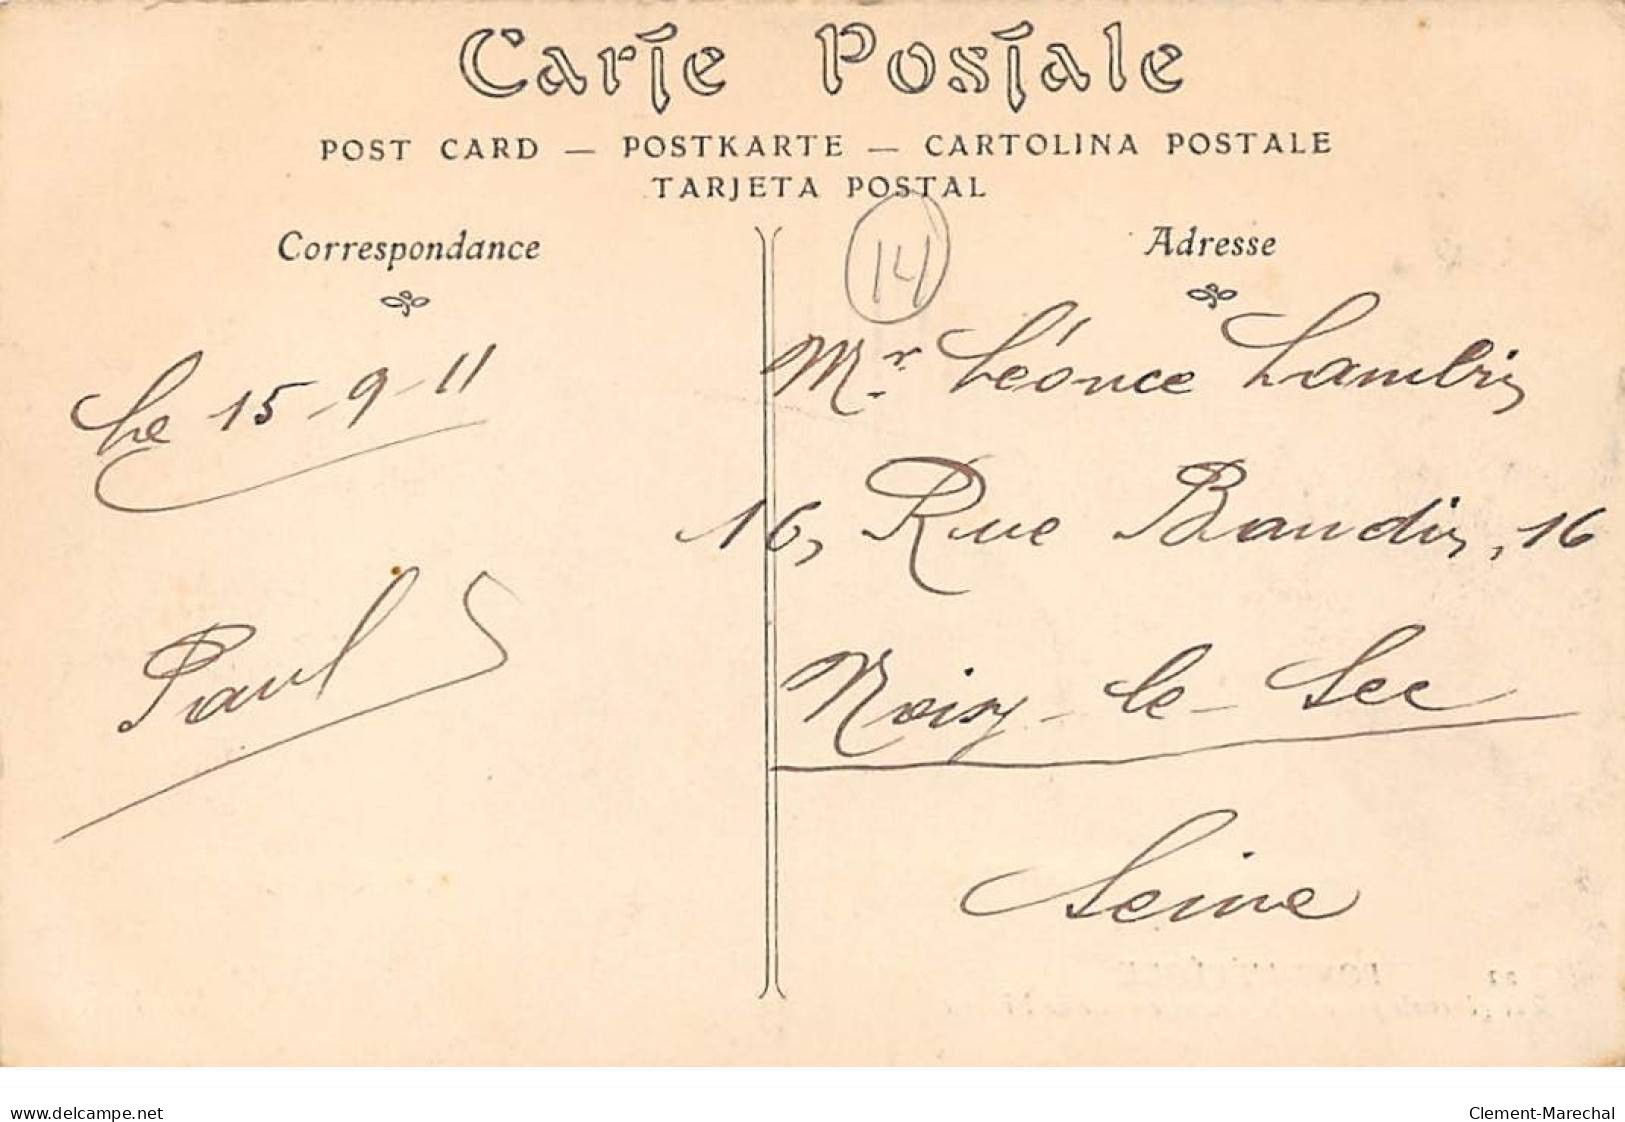 Carte Postale
POST CARD — POSTKARTE — CARTOLINA POSTALE
TARJETA POSTAL
Correspondance
Le 15-9-11
Paul S
14
Adresse
Mr Léonce
16, Rue Baudin, 16
Noisy-le-Sec
Seine
www.delcampe.net
Clement-Marechal